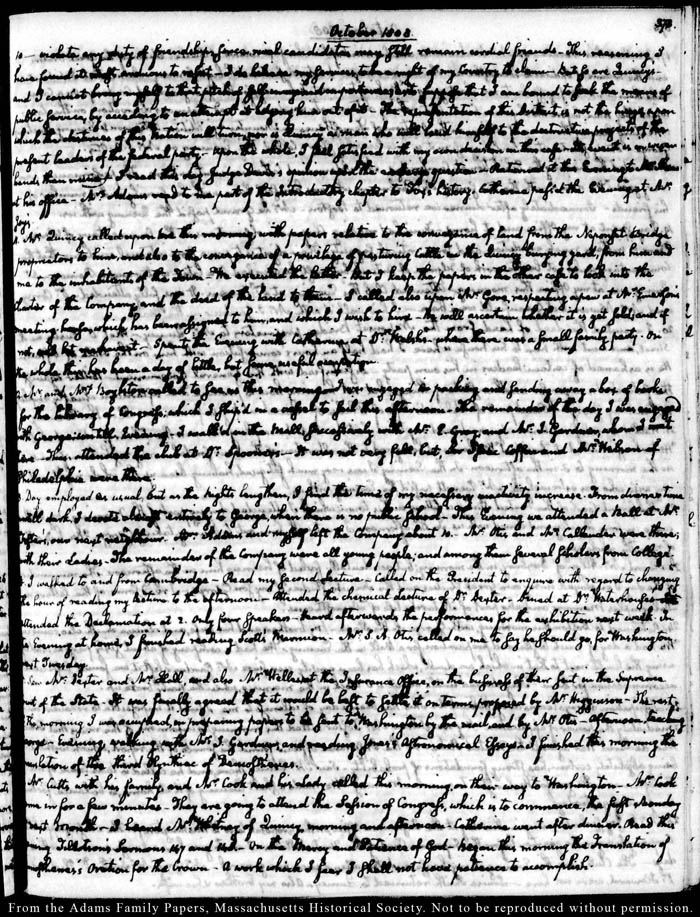 October 1808.
373.
10 — violate any duty of friendship, since rival candidates may still remain cordial friends — This reasoning I
have found it most anxious to resist — I do believe my services, to be a right of my Country to claim — But so are Quincy's
and I cannot bring myself to that pitch of self as to suppose that I am bound to seek the means of
public service, by acceding to an attempt at edging him out of it — The representation of this district is not the hinge upon
which the destinies of this Nation will turn, nor is Quincy a man who will lend himself to the destructive projects of the
present leaders of the federal party — Upon the whole, I feel satisfied with my conduct in this case — the result is in wiser
hands than mine — I read this day Judge Davis's opinion upon the question — Returned at this Evening to
at his office — Mrs Adams read to me part of the introductory chapter to Fox's history. Catherine pass'd the Evening at Mr
Gray's
Mr Quincy called upon me this morning with papers relative to the conveyance of land from the Neponset Bridge
proprietors to him, and also to the conveyance of a privilege of pasturing Cattle in the Quincy burying yard, from him and
me to the inhabitants of the Town — We executed the latter — But I keep the papers in the other case to look into the
charter of the Company, and the deed of the land to them — I called also upon Mr Gore, respecting a pew at Mr Emerson's
meeting-house, which has been assigned to him, and which I wish to hire — He will ascertain whether it is yet sold; and if
not, will let me have it — Spent the Evening with Catherine, at Dr Welsh's — where there was a small family party. On
the whole this has been a day of little, but some useful occupation.
Mr and Mrs Boylston called to see us this morning — I was engaged in packing and sending away a box of books
for the library of Congress, which I ship'd in a vessel to sail this afternoon — The remainder of the day I was engaged
with George untill Evening — I walked in the Mall, successively with Mr P. Gray, and Mr S. Gardner, whom I met
there. Then attended the club at Dr Spooner's — It was not very full, but, Sir Isaac Coffin and Mr Nelson of
Philadelphia were there.
Day employed as usual, but as the Nights lengthen, I find the time of my necessary inactivity increase — From dinner time
untill dark, I devote almost entirely to George, when there is no public School — This Evening we attended a Ball at Mr
our next neighbour. Mrs Adams and myself left the Company about 10. — Mr Otis and Mr Callender were there;
with their Ladies — The remainder of the Company were all young people; and among them several Scholars from College.
I walked to and from Cambridge — Read my second lecture — Called on the President to enquire with regard to changing
the hour of reading my lecture to the afternoon — Attended the chemical lecture of Dr Dexter — Dined at Dr Waterhouse's
attended the Declamation at 2. Only four Speakers — Heard afterwards the performances for the exhibition next week. In
the Evening at home, I finished reading Scott's Marmion — Mr S. A. Otis called on me to say he should go, for Washington
next Tuesday.
Saw Mr Dexter and Mr Hall, and also Mr Welles at the Insurance Office, on the business of their suit in the Supreme
Court of the State — It was finally agreed that it would be best to settle it on terms proposed by Mr Higginson — The rest of
the morning I was occupied, in preparing papers to be sent to Washington by the mail and by Mr Otis — Afternoon, teaching
George — Evening, walking with Mr S. Gardner, and reading Jones's Astronomical Essays — I finished this morning the
translation of the third Olynthiac of Demosthenes.
Mr Cutts with his family, and Mr Cook and his Lady, called this morning, on their way to Washington — Mr Cook
came in for a few minutes. They are going to attend the Session of Congress, which is to commence, the first Monday
next month — I heard Mr Whitney of Quincy morning and afternoon. Catherine went after dinner. Read this
evening Tillotson's Sermons 147 and 148 — On the Mercy and Patience of God — Began this morning the Translation of
Demosthenes's Oration for the Crown — A work which I fear I shall not have patience to accomplish.
From the Adams Family Papers, Massachusetts Historical Society. Not to be reproduced without permission.